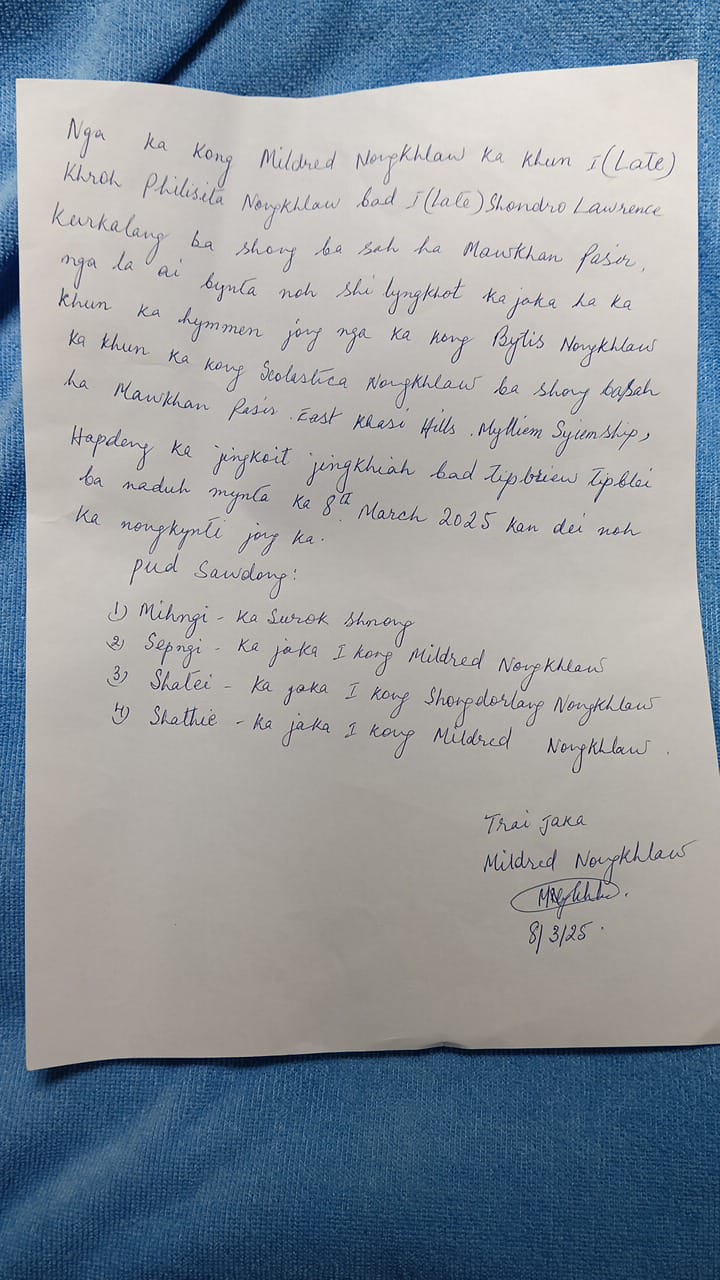 Nga ka Kong Mildred Nongkhlaw ka khun I (Late)
Khroh Philisita Nongkhlaw bad I (Late) Shondro Lawrence
Kurkalang ba shong ba sah ha Mawkhan Pasir,
nga la ai bynta noh shi lyngkhot ka jaka ha ka
khun ka hymmen jong nga ka kong Bytis Nongkhlaw
ka khun ka kong Scolastica Nongkhlaw ba shong basah
ha Mawkhan Pasir. East Khasi Hills. Mylliem Syiemship,
Hapdeng ka jingkoit jingkhiah bad tipbriew tipblei
ba naduh mynta ka 8th March 2025 kan dei noh
ka nongkynti jong ka.
pud Sawdong:
1) Mihngi - ka Surok Shnong
2) Sepngi - ka jaka I kong Mildred Nongkhlaw
3) Shatei - ka jaka I kong Shongdorlang Nongkhlaw
4) Shathie - ka jaka I kong Mildred Nongkhlaw.
Trai Jaka
Mildred Nongkhlaw
8/3/25.